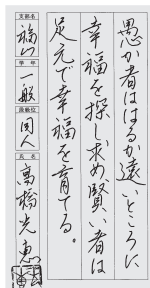 愚か者ははるか遠いところに
幸福を探し求め賢い者は
足元で幸福を育てる。
支部名
福山
学年
一般
段級位
同人
氏名
高橋光恵